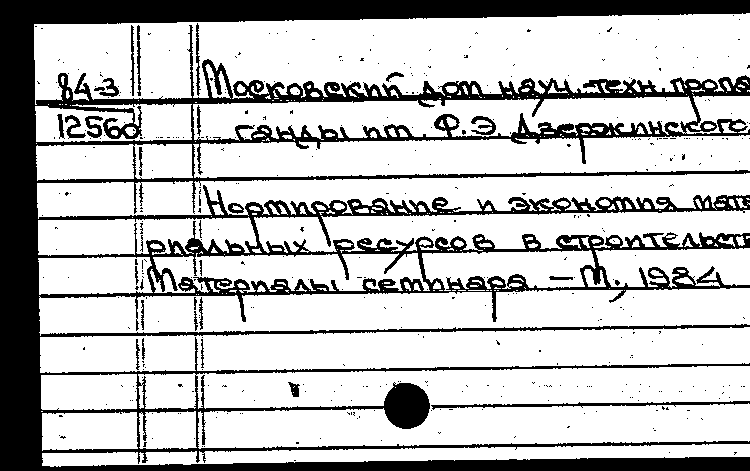 84-3
12560
Московский дом науч.-техн. пропа
ганды им. Ф.Э. Дзержинского
Нормирование и экономия мате
риальных ресурсов в строительств
Материалы семинара. — М., 1984